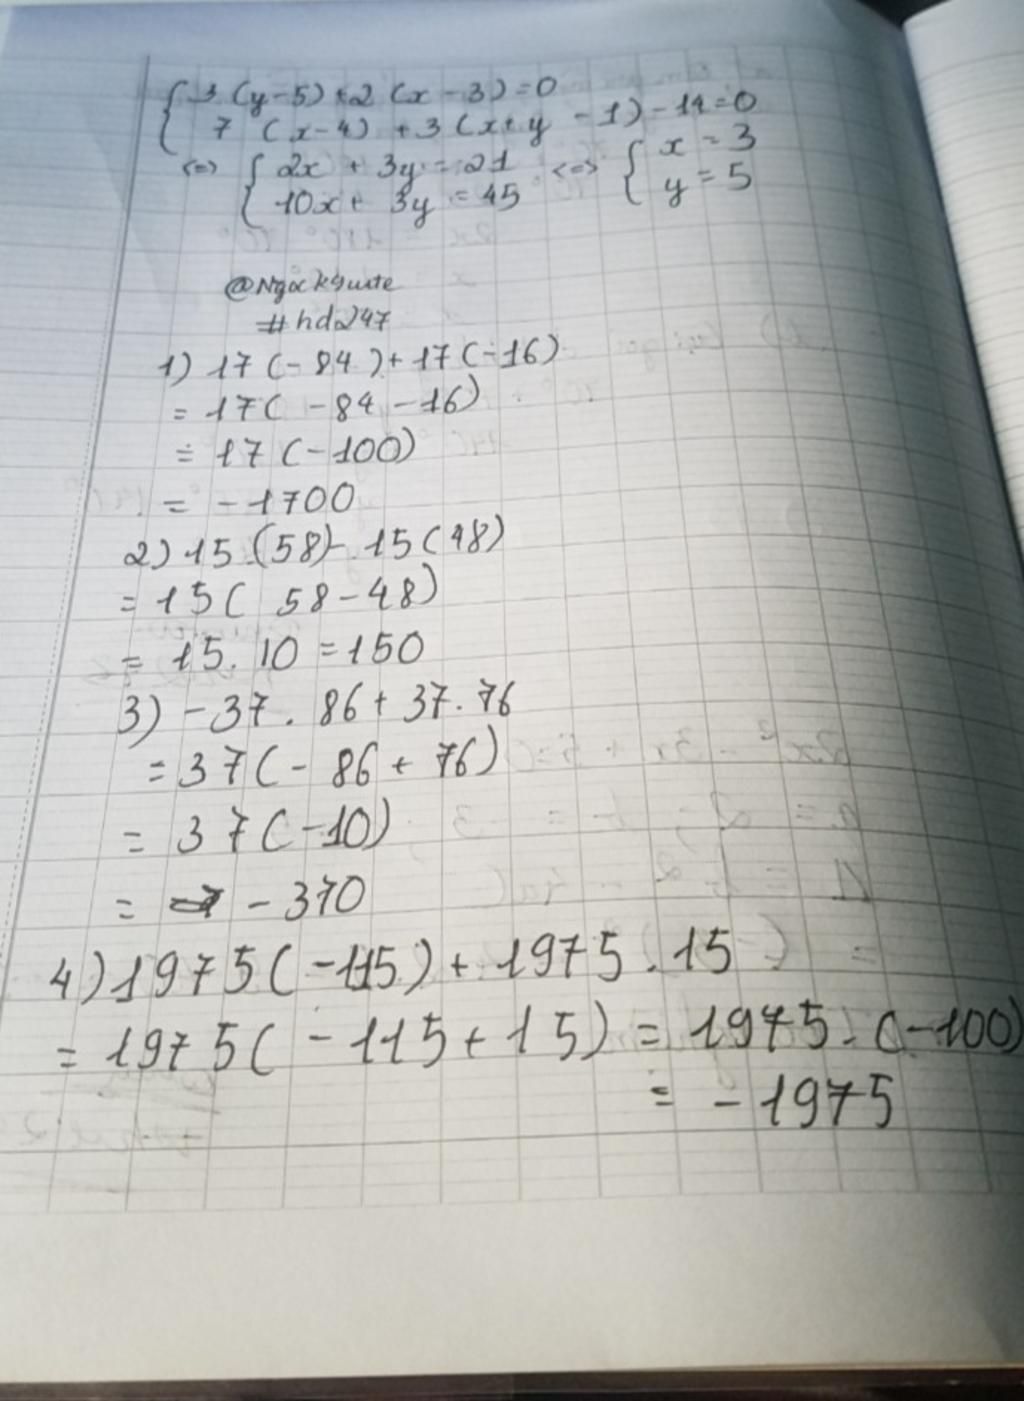 { 3 (y-5) + 2 (x - 3) = 0
7 (x-4) + 3 (x+y - 1) - 14 = 0
<=> { 2x + 3y = 21 <=> { x = 3
10x + 3y = 45 y = 5
@Ngockguute
#hd247
1) 17 (-84) + 17 (-16)
= 17 ( -84 -16)
= 17 (-100)
= -1700
2) 15 (58) - 15 (48)
= 15 ( 58 - 48)
= 15. 10 = 150
3) -37 . 86 + 37 . 76
= 37 (- 86 + 76)
= 37 (-10)
= - 370
4) 1975 (-115) + 1975 . 15
= 1975 ( -115 + 15) = 1975 . (-100)
= - 1975